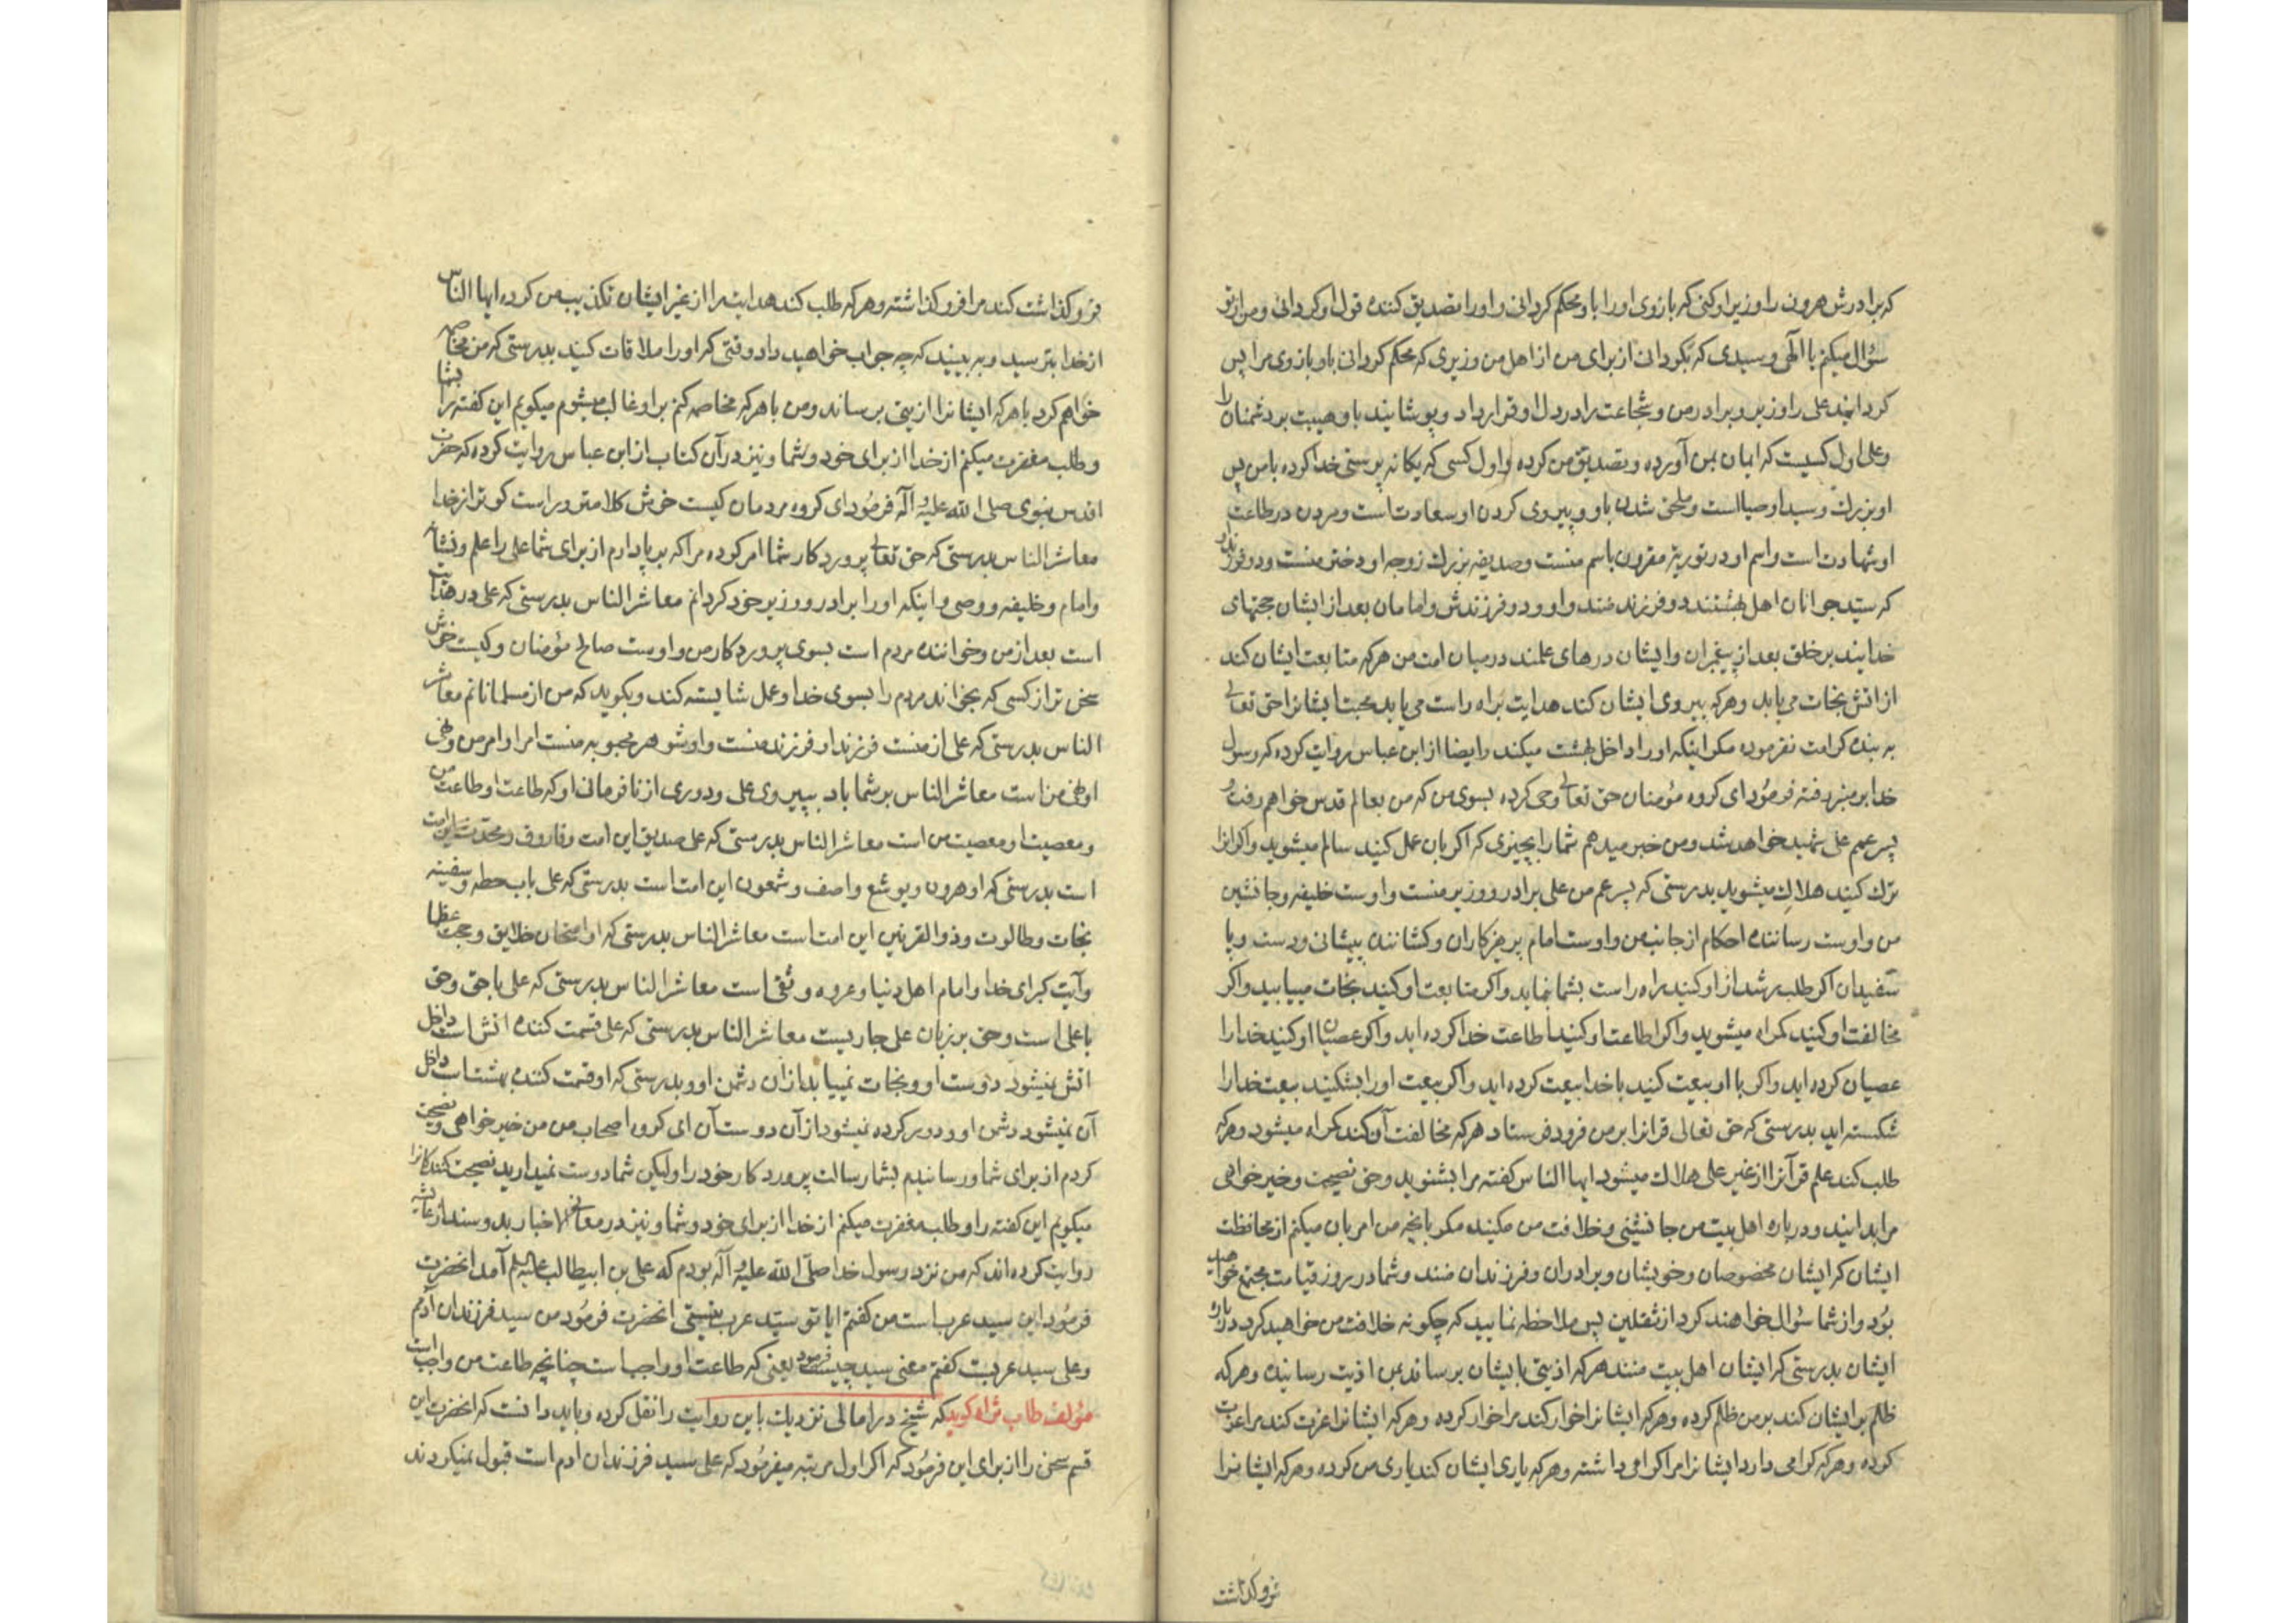 که برادرش هرون را وزیر او کنی که بازوی او را باو محکم گردانی و او را تصدیق کننده قول او گردانی و من از تو
سؤال میکنم یا الٓهی و سیدی که بگردانی از برای من از اهل من وزیری که محکم گردانی باو بازوی مرا پس
گردانید علی را وزیر و برادر من و شجاعت را در دل او قرار داد و پوشانید باو هیبت بر دشمنان را
و علی اول کسیست که ایمان بمن آورده و تصدیق من کرده و اول کسی که یکانه پرستی خدا کرده با من پس
او بزرك و سید اوصیا است و ملحق شدن باو و پیروی کردن او سعادت است و مردن در طاعت
او شهادت است و اسم او در توریة مقرون باسم منست و صدیقه بزرك زوجه او دختر منست و دو فرزند او
که سید جوانان اهل بهشتند دو فرزند منند و او و دو فرزندش و امامان بعد از ایشان حجتهای
خدایند بر خلق بعد از پیغمبران و ایشان درهای علمند در میان امت من هر که متابعت ایشان کند
از اتش نجات می یابد و هر که پیروی ایشان کند هدایت براه راست می یابد محبت ایشانرا حق تعالی
به بنده کرامت نفرموده مکر اینکه او را داخل بهشت میکند و ایضا از ابن عباس روایت کرده که رسول
خدا بر منبر رفته فرمود ای کروه مؤمنان حق تعالی وحی کرده بسوی من که من بعالم قدس خواهم رفت و
پسر عمم علی شهید خواهد شد و من خبر میدهم شما را بچیزی که اکر بان عمل کنید سالم میشوید و اکر انرا
ترك کنید هلاك میشوید بدرستی که پسر عم من علی برادر و وزیر منست و اوست خلیفه و جانشین
من و اوست رساننده احکام از جانب من و اوست امام پرهیزکاران و کشاننده پیشانی و دست و پا
سفیدان اکر طلب رشد از او کنید براه راست بشما نماید و اکر متابعت او کنید نجات مییابید و اکر
مخالفت او کنید کمراه میشوید و اکر اطاعت او کنید اطاعت خدا کرده اید و اکر عصیان او کنید خدا را
عصیان کرده اید و اکر با او بیعت کنید با خدا بیعت کرده اید و اکر بیعت او را بشکنید بیعت خدا را
شکسته اید بدرستی که حق تعالی قرانرا بر من فرود فرستاد هر که مخالفت آن کند کمراه میشود و هر که
طلب کند علم قرآنرا از غیر علی هلاك میشود ایها الناس کفته مرا بشنوید و حق نصیحت و خیر خواهی
مرا بدانید و در باره اهل بیت من جانشینی و خلافت من مکنید مکر بانچه من امر بان میکنم از محافظت
ایشان که ایشان مخصوصان و خویشان و برادران و فرزندان منند و شما در روز قیامت مجتمع خواهید
بود و از شما سؤال خواهند کرد از ثقلین پس ملاحظه نمایید که چکونه خلافت من خواهید کرد در باره
ایشان بدرستی که ایشان اهل بیت منند هر که اذیتی بایشان برساند بمن اذیت رسانیده و هر که
ظلم بر ایشان کند بر من ظلم کرده و هر که ایشانرا خوار کند مرا خوار کرده و هر که ایشانرا عزت کند مرا عزت
کرده و هر که کرامی دارد ایشانرا مرا کرامی داشته و هر که یاری ایشان کند یاری من کرده و هر که ایشانرا
فروکذاشت
فروکذاشت کند مرا فروکذاشته و هر که طلب کند هدایت را از غیر ایشان تکذیب من کرده ایها الناس
از خدا بترسید و به بینید که چه جواب خواهید داد وقتی که او را ملاقات کنید بدرستی که من مخاصمه
خواهم کرد با هر که ایشانرا اذیتی برساند و من با هر که مخاصمه کنم بر او غالب میشوم میکویم این کفته را بشما
و طلب مغفرت میکنم از خدا از برای خود و شما و نیز در آن کتاب از ابن عباس روایت کرده که حضرت
اقدس نبوی صلی الله علیه و آله فرمود ای کروه مردمان کیست خوش کلامتر و راست کوتر از خدا
معاشر الناس بدرستی که حق تعالی پروردکار شما امر کرده مرا که بر پا دارم از برای شما علی را علم و نشانه
و امام و خلیفه و وصی و اینکه او را برادر و وزیر خود کردانم معاشر الناس بدرستی که علی در هدایت
است بعد از من و خواننده مردم است بسوی پروردکار من و اوست صالح مؤمنان و کیست خوش
سخن تر از کسی که بخواند مردم را بسوی خدا و عمل شایسته کند و بکوید که من از مسلمانانم معاشر
الناس بدرستی که علی از منست فرزند او فرزند منست و او شوهر محبوبه منست امر او امر من و نهی
او نهی من است معاشر الناس بر شما باد بپیروی علی و دوری از نافرمانی او که طاعت او طاعت من
و معصیت او معصیت من است معاشر الناس بدرستی که علی صدیق این امت و فاروق و محدث این امت
است بدرستی که او هرون و یوشع و اصف و شمعون این امت است بدرستی که علی باب حطه و سفینه
نجات و طالوت و ذو القرنین این امت است معاشر الناس بدرستی که او امتحان خلایق و حجت عظما
و آیت کبرای خدا و امام اهل دنیا و عروه وثقی است معاشر الناس بدرستی که علی با حق و حق
با علی است و حق بر زبان علی جاریست معاشر الناس بدرستی که علی قسمت کننده اتش است داخل
اتش نمیشود دوست او و نجات نمییابد از آن دشمن او و بدرستی که او قسمت کننده بهشت است داخل
آن نمیشود دشمن او و دور کرده نمیشود از آن دوست آن ای کروه اصحاب من من خیر خواهی و نصیحت
کردم از برای شما و رسانیدم بشما رسالت پروردکار خود را ولیکن شما دوست نمیدارید نصیحت کنندکانرا
میکویم این کفته را و طلب مغفرت میکنم از خدا از برای خود و شما و نیز در معانی الاخبار بدو سند از عایشه
روایت کرده اند که من نزد رسول خدا صلی الله علیه و آله بودم که علی بن ابیطالب علیه السلم آمد انحضرت
فرمود این سید عرب است من کفتم ایا تو سید عرب نیستی انحضرت فرمود من سید فرزندان آدمم
و علی سید عربست کفتم معنی سید چیست فرمود یعنی که طاعت او واجب است چنانچه طاعت من واجب است
مؤلف طاب ثراه کوید که شیخ در امالی نزدیك باین روایت را نقل کرده و باید دانست که انحضرت این
قسم سخن را از برای این فرمود که اکر اول مرتبه میفرمود که علی سید فرزندان ادم است قبول نمیکردند